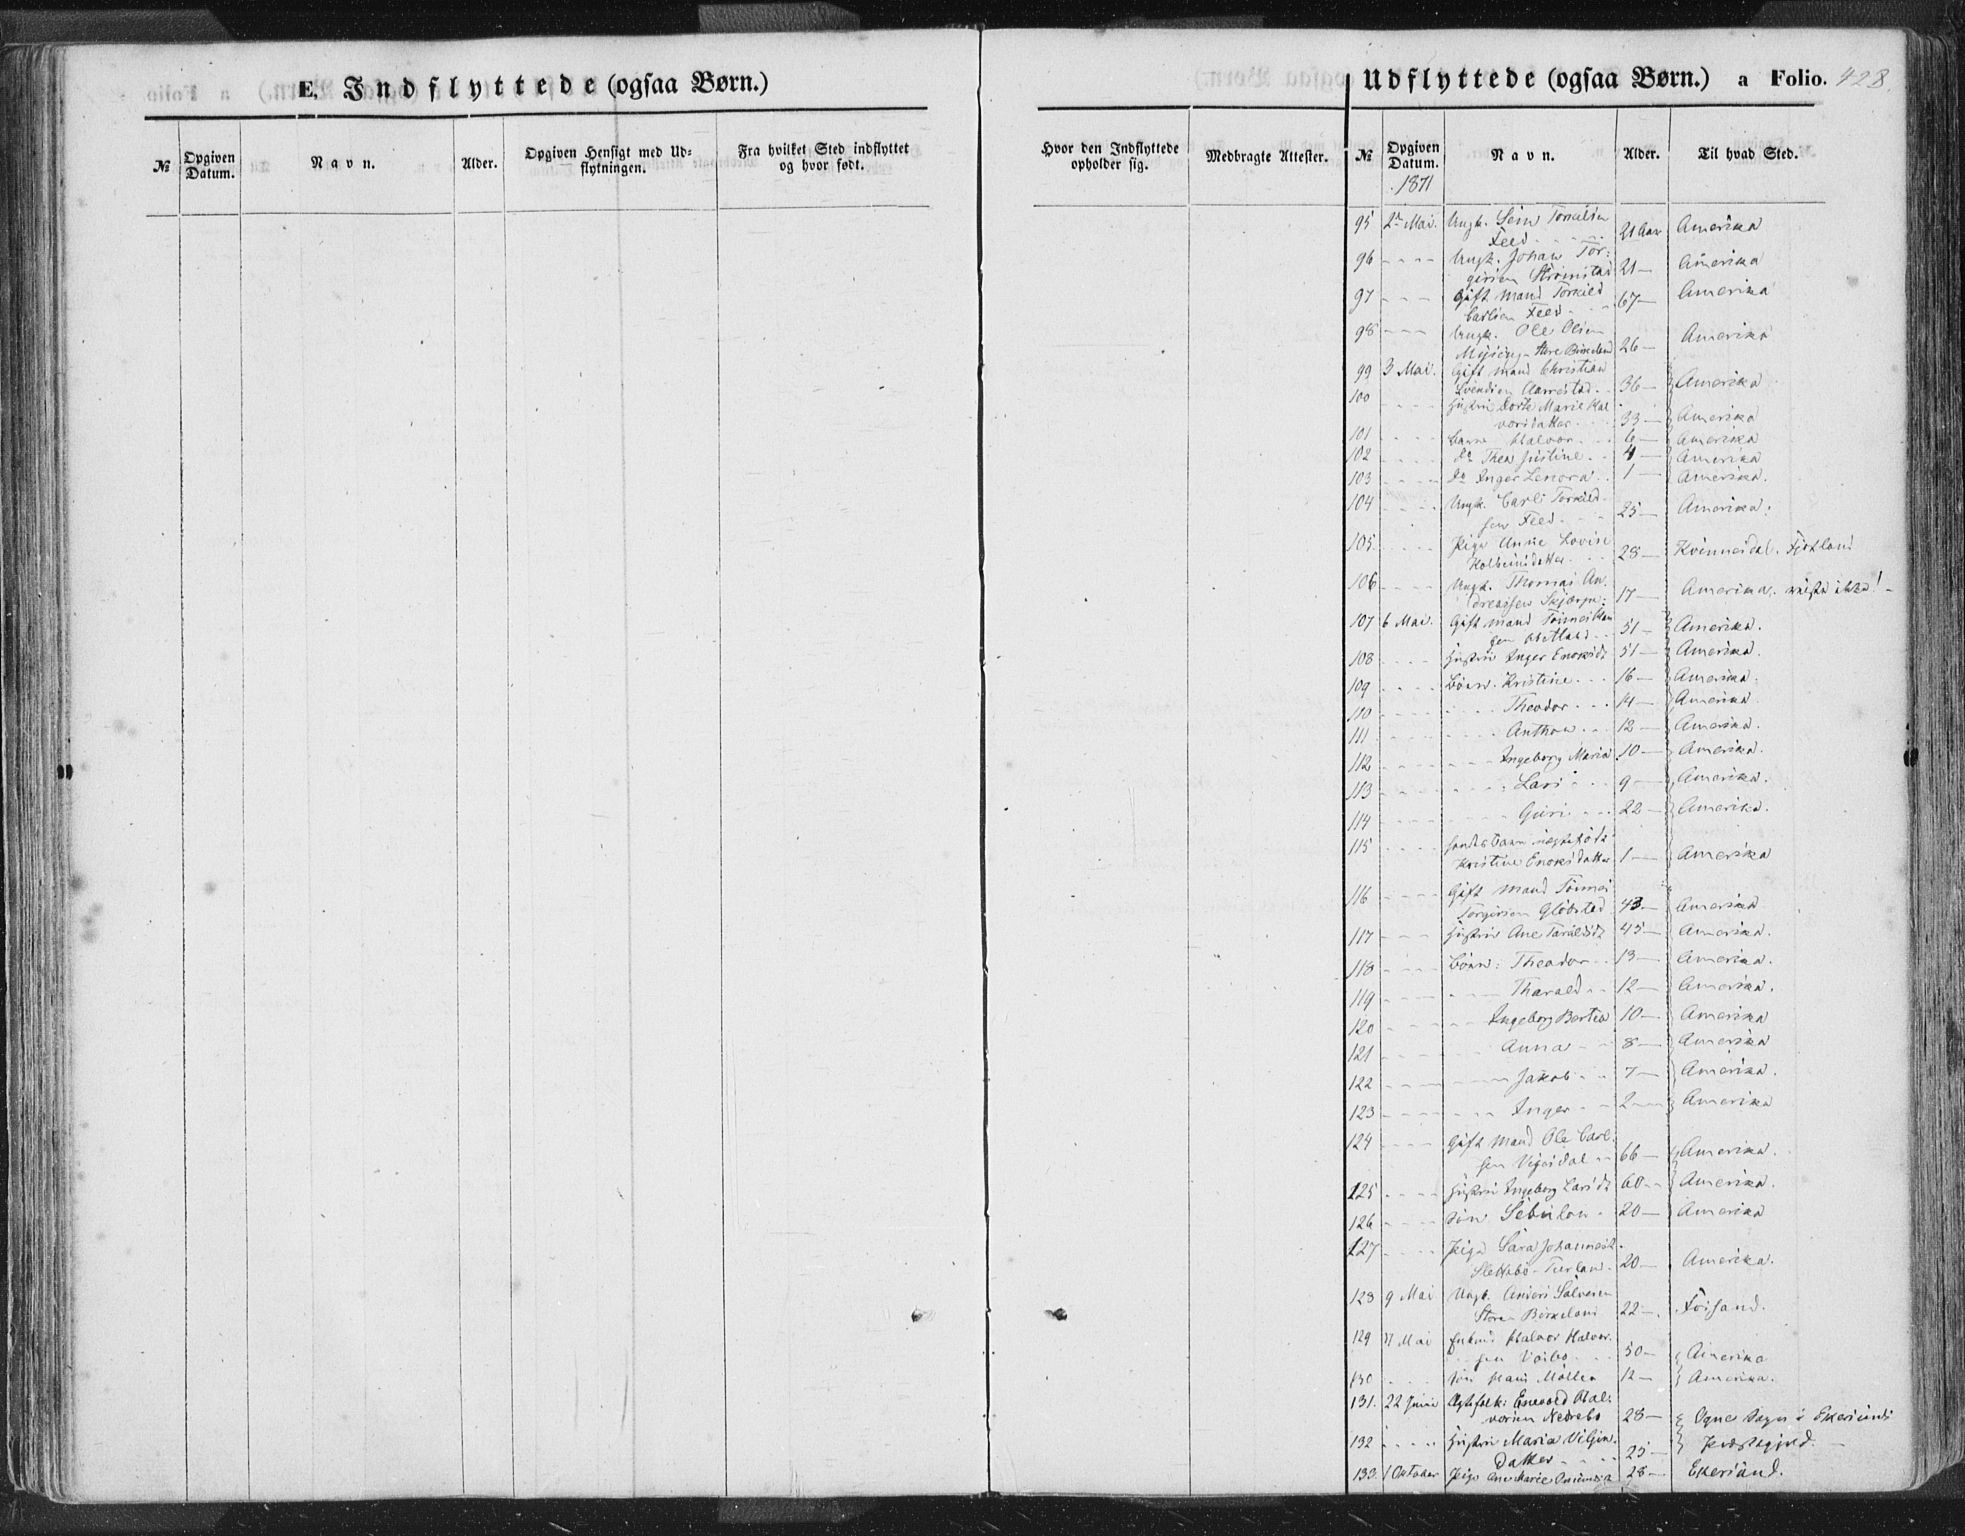 E. Indflyttede (ogsaa Børn.)
№ Opgiven Datum. Navn. Alder. Opgiven Hensigt med Udflytningen. Fra hvilket Sted indflyttet og hvor født.
Hvor den Indflyttede opholder sig. Medbragte Attester.
Udflyttede (ogsaa Børn.) a Folio. 428.
№ Opgiven Datum. Navn. Alder. Til hvad Sted.
1871
95 2d Mai. Ungk. Torkilsen
Feed 21 Aar Amerika
96 Ungk. Johan Tor-
gersen Strömstad 21 Amerika
97 Gift Mand Torkild
Carlsen Feed 67 Amerika
98 Ungk. Ole Olsen
26 Amerika
99 3 Mai. Gift Mand Christian
Svendsen Aarrestad 36 Amerika
100 Hustru Dorte Marie Hal
vorsdatter 33 Amerika
101 Barn Halvor 6 Amerika
102 do Thea Justine 4 Amerika
103 do Inger Lenora 1 Amerika.
104 Ungk. Carl Torkild
sen Feed 25 Amerika.
105 Pige Anne Lovise
Kolbeinsdatter 28 Kvinnesdal. Fjotland
106 Ungk. Thomas An-
dreassen Skjærpe 17 Amerika, reiste ikke!
107 6 Mai. Gift Mand Tönnes Han
sen 51 Amerika.
108 Hustru Inger Enoksdt 51 Amerika.
109 Börn. Kristine 16 Amerika.
110 Theodor 14 Amerika.
111 Anthon 12 Amerika.
112 Ingeborg Maria 10 Amerika.
113 Lars 9 Amerika.
114 Guri 22 Amerika.
115
Kristine Enoksdatter 1 Amerika
116 Gift Mand Tönnes
Torgersen Glöbstad 43 Amerika
117 Hustru Ane Taraldsdt 45 Amerika.
118 Börn: Theodor 13 Amerika.
119 Tharald 12 Amerika.
120 Ingeborg Bertea 10 Amerika
121 Anna 8 Amerika
122 Jakob 7 Amerika.
123 Inger 2 Amerika
124 Gift Mand Ole Carl-
sen 66 Amerika.
125 Hustru Ingeborg Larsdt 60 Amerika.
126 Sön Sebulon 20 Amerika
127 Pige Sara Johannesdt
Slettebö 20 Amerika.
128 9 Mai Ungk. Anders Salvesen
Store Birkeland 22 Forsand.
129 Mai Enkem. Halvor Halvor-
sen 50 Amerika
130 Sön Hans 12 Amerika.
131. 22 Juni Ægtefolk: Enevold Hal-
vorsen Nedrebö 28 Ogne Sogn i Ekersund
132 Hustru Maria
Datter 25 Præstegjeld.
133 1 October Pige Ane Marie 28 Ekersund.